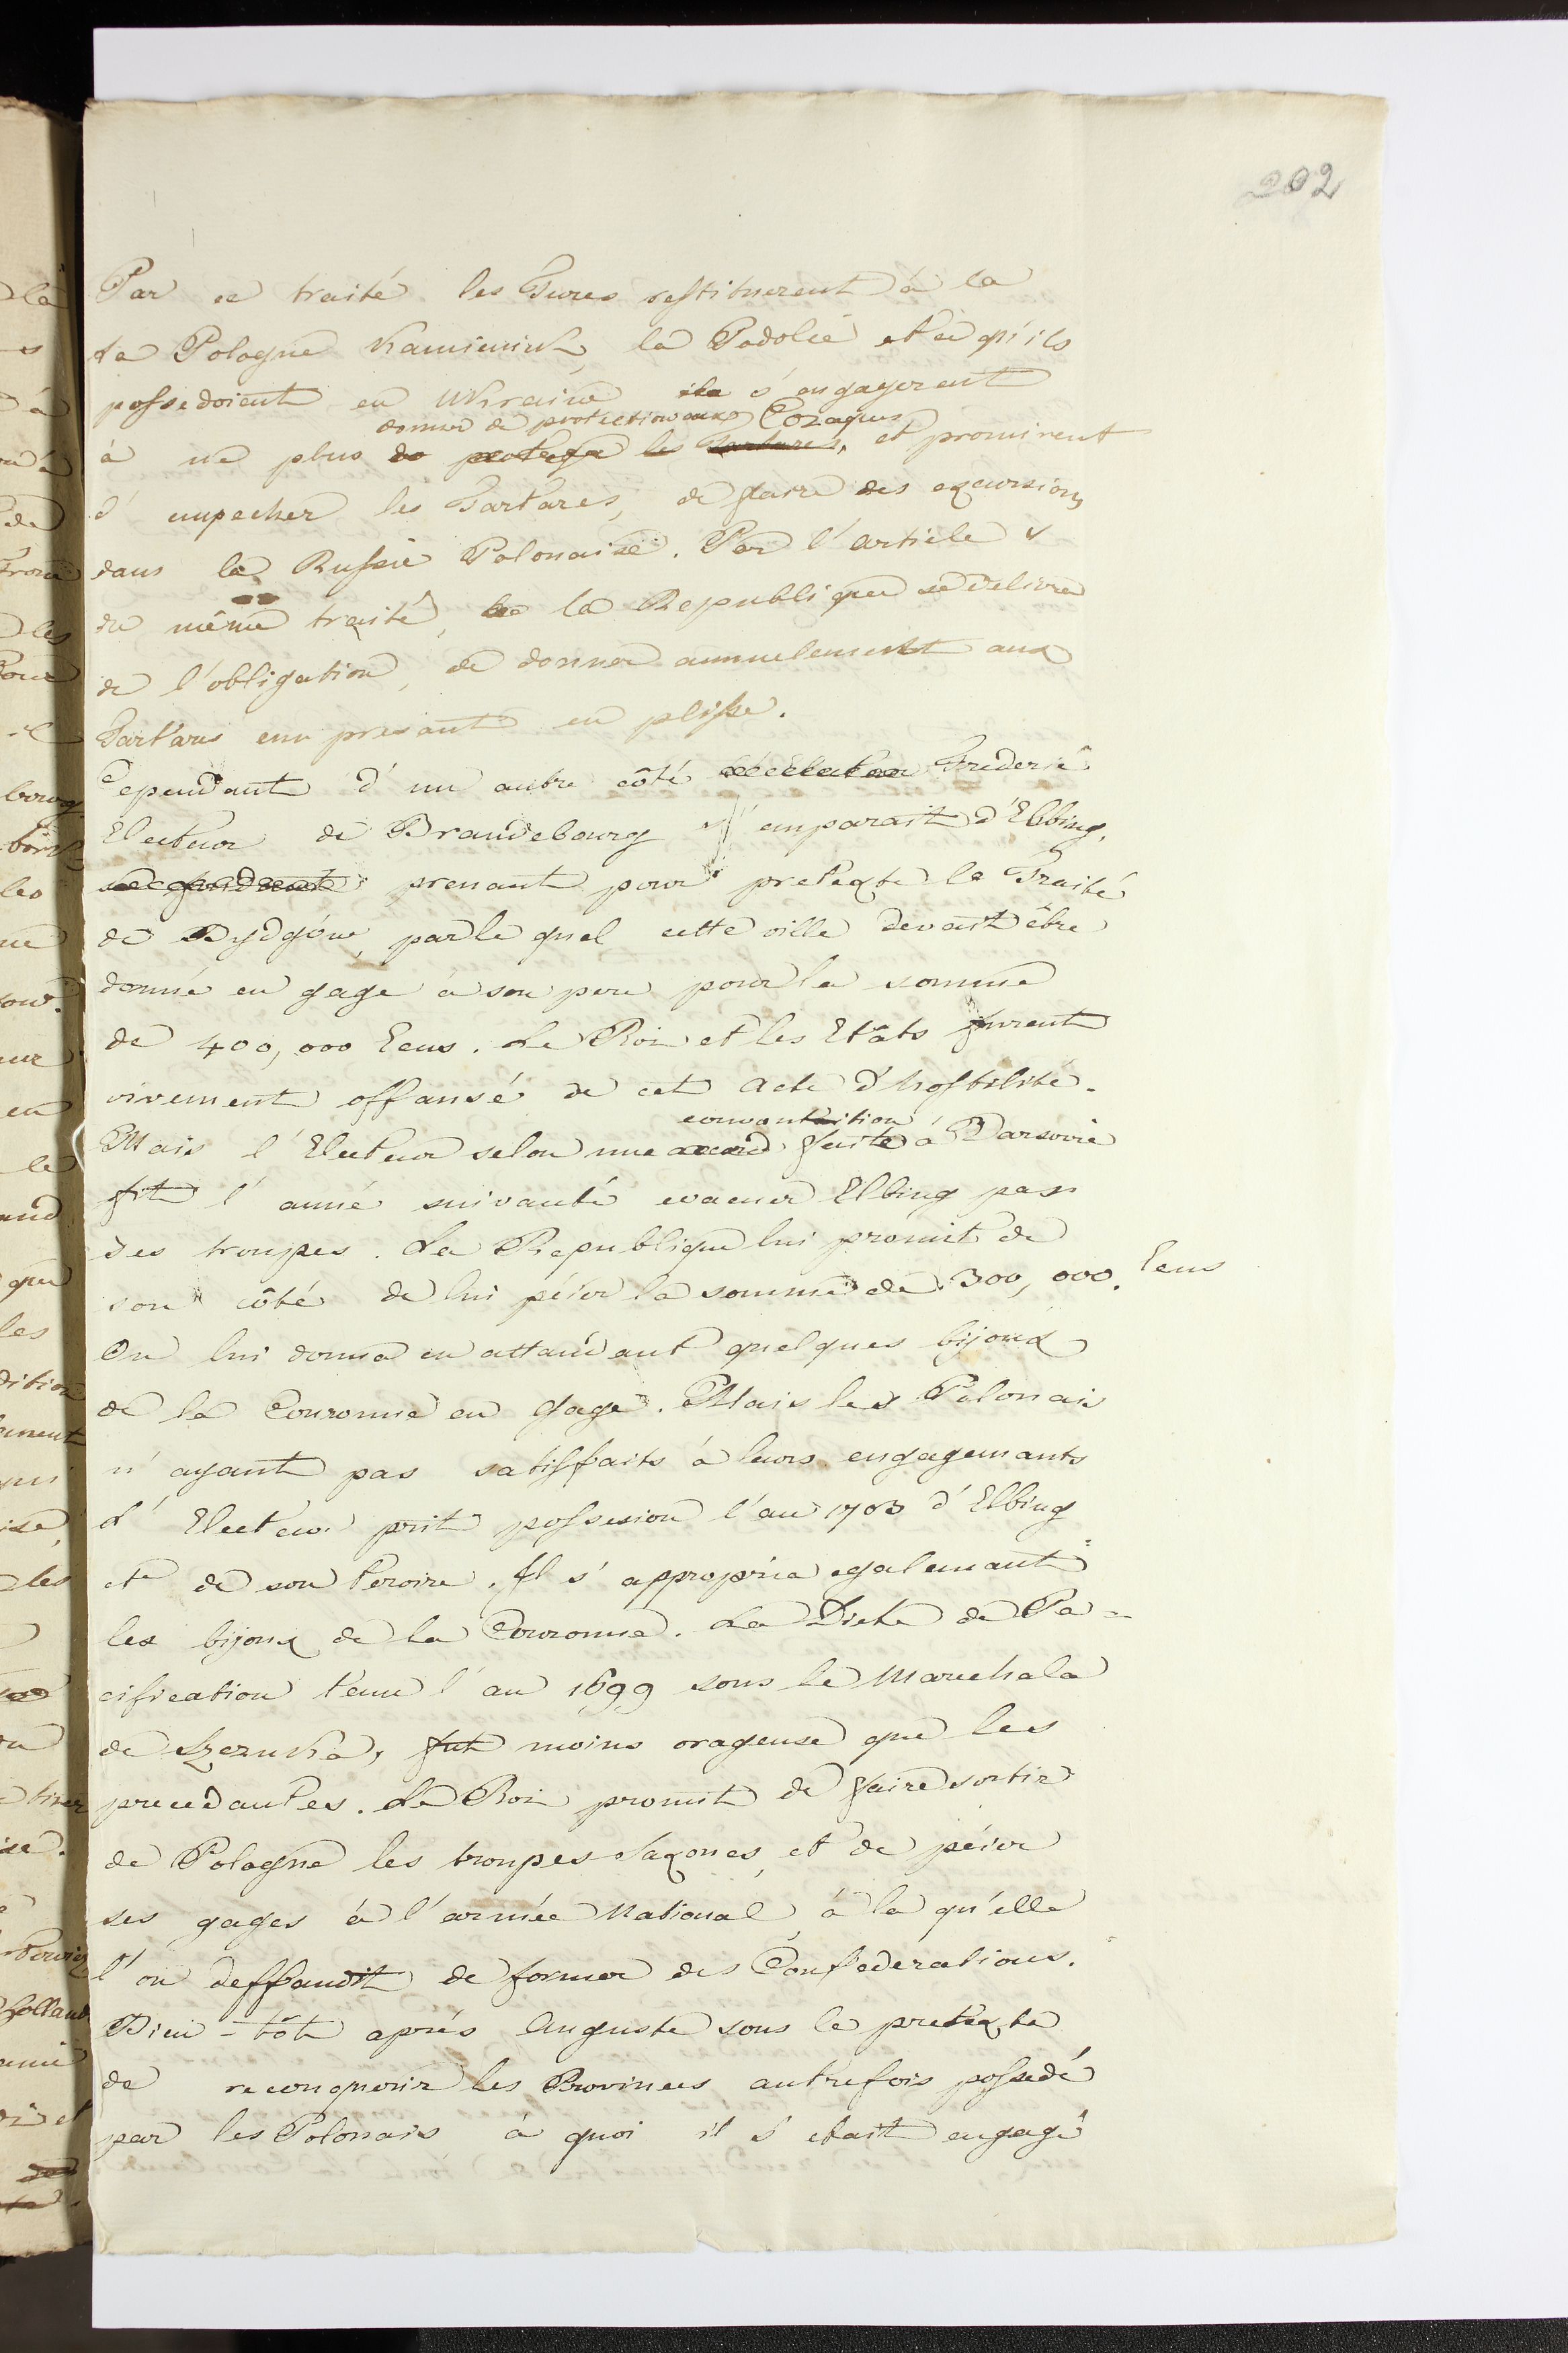 202
Par ce traité les Turcs restituerent à la
la Pologne Kamieniek, la Podolie et ce qu'ils
possedoient en Ukraine ils s'engagerent
donner de protection aux Cozaques
à ne plus de proteger les Tartares, et promirent
d'empecher les Tartares, de faire des excursions
dans la Russie Polonaise. Par l'article
du même traité, la Republique se delivra
de l'obligation, de donner annuelement aux
Tartares un presant en plisse.
Cependant d'un autre côté l'Electeur Frederic
Electeur de Brandebourg s'emparait d'Elbing,
prenant pour pretexte le Traité
de Bydgówe, par le quel cette ville devait être
donné en gage à son pere pour la somme
de 400,000 Ecus. Le Roi et les Etâts furent
vivement offansé de cet acte d'hostilité.
Mais l'Electeur selon une accord faite à Varsovie
fit l'anné suivante evacuer Elbing par
ses troupes. La Republique lui promit de
son côté de lui péier la somme de 300,000. Ecus
On lui donna en attandant quelques bijoux
de la Couronne en gage. Mais les Polonais
n'ayant pas satisfaits à leurs engagemants
l'Electeur prit possesion l'an 1703 d'Elbing
et de son teroire. Il s'appropria egalemant
les bijoux de la Couronne. La Diete de Pa=
cification tenu l'an 1699 sous le Marechala
de Szczuka, fut moins orageuse que les
precedantes. Le Roi promit de faire sortir
de Pologne les troupes Saxones, et de péier
ses gages à l'armée National à la qu'elle
l'on deffandit de former des Confederations.
Bien-tôt aprés Auguste sous le pretexte
de reconquerir les Provinces autrefois possedé
par les Polonais à quoi il s'etait engagé